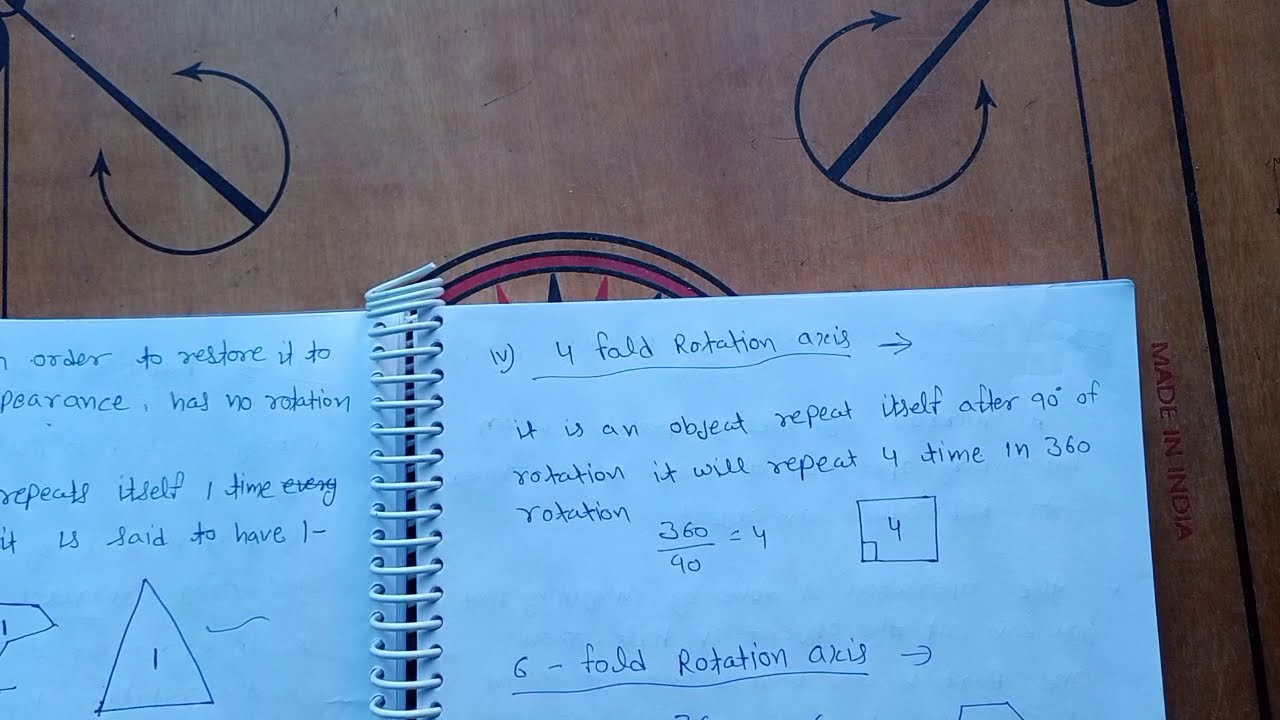 order to restore it to
pearance, has no rotation
repeats itself 1 time every
it is said to have 1-
1
1
iv) 4 fald Rotation axis →
it is an object repeat itself after 90° of
rotation it will repeat 4 time in 360
rotation
360
90
= 4
4
6 - fold Rotation axis →
MADE IN INDIA